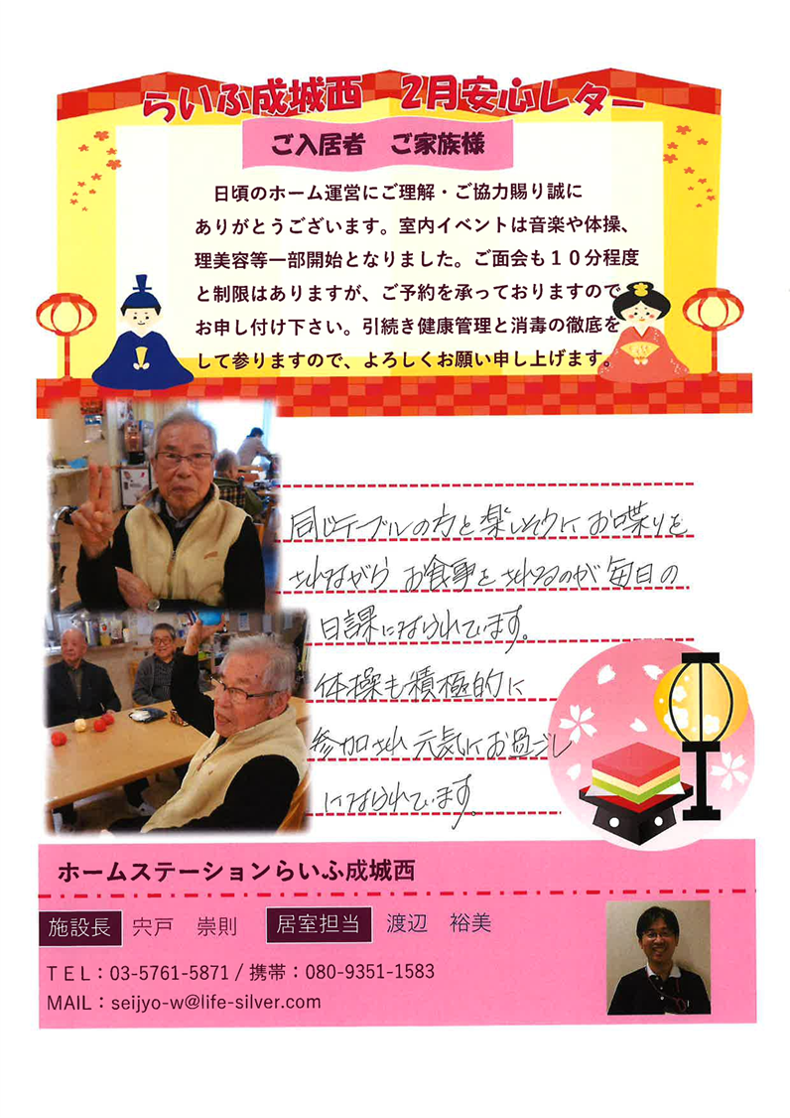 らいふ成城西　2月安心レター
ご入居者　ご家族様
日頃のホーム運営にご理解・ご協力賜り誠に
ありがとうございます。室内イベントは音楽や体操、
理美容等一部開始となりました。ご面会も１０分程度
と制限はありますが、ご予約を承っておりますので
お申し付け下さい。引続き健康管理と消毒の徹底を
して参りますので、よろしくお願い申し上げます。
同じテーブルの方と楽しそうにお喋りを
されながら お食事をされるのが毎日の
日課になられています。
体操も積極的に
参加され 元気にお過ごし
になられています。
ホームステーションらいふ成城西
施設長 宍戸　崇則 居室担当 渡辺　裕美
ＴＥＬ：03-5761-5871 / 携帯：080-9351-1583
MAIL：seijyo-w@life-silver.com